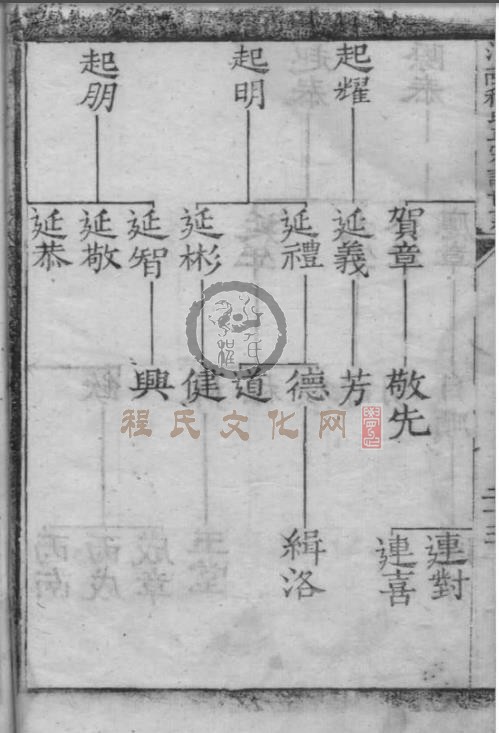 起耀
起明
起朋
賀章
延義
延禮
延彬
延智
延敬
延恭
敬先
芳
德
道
健
興
連對
連喜
緝洛
程氏文化网